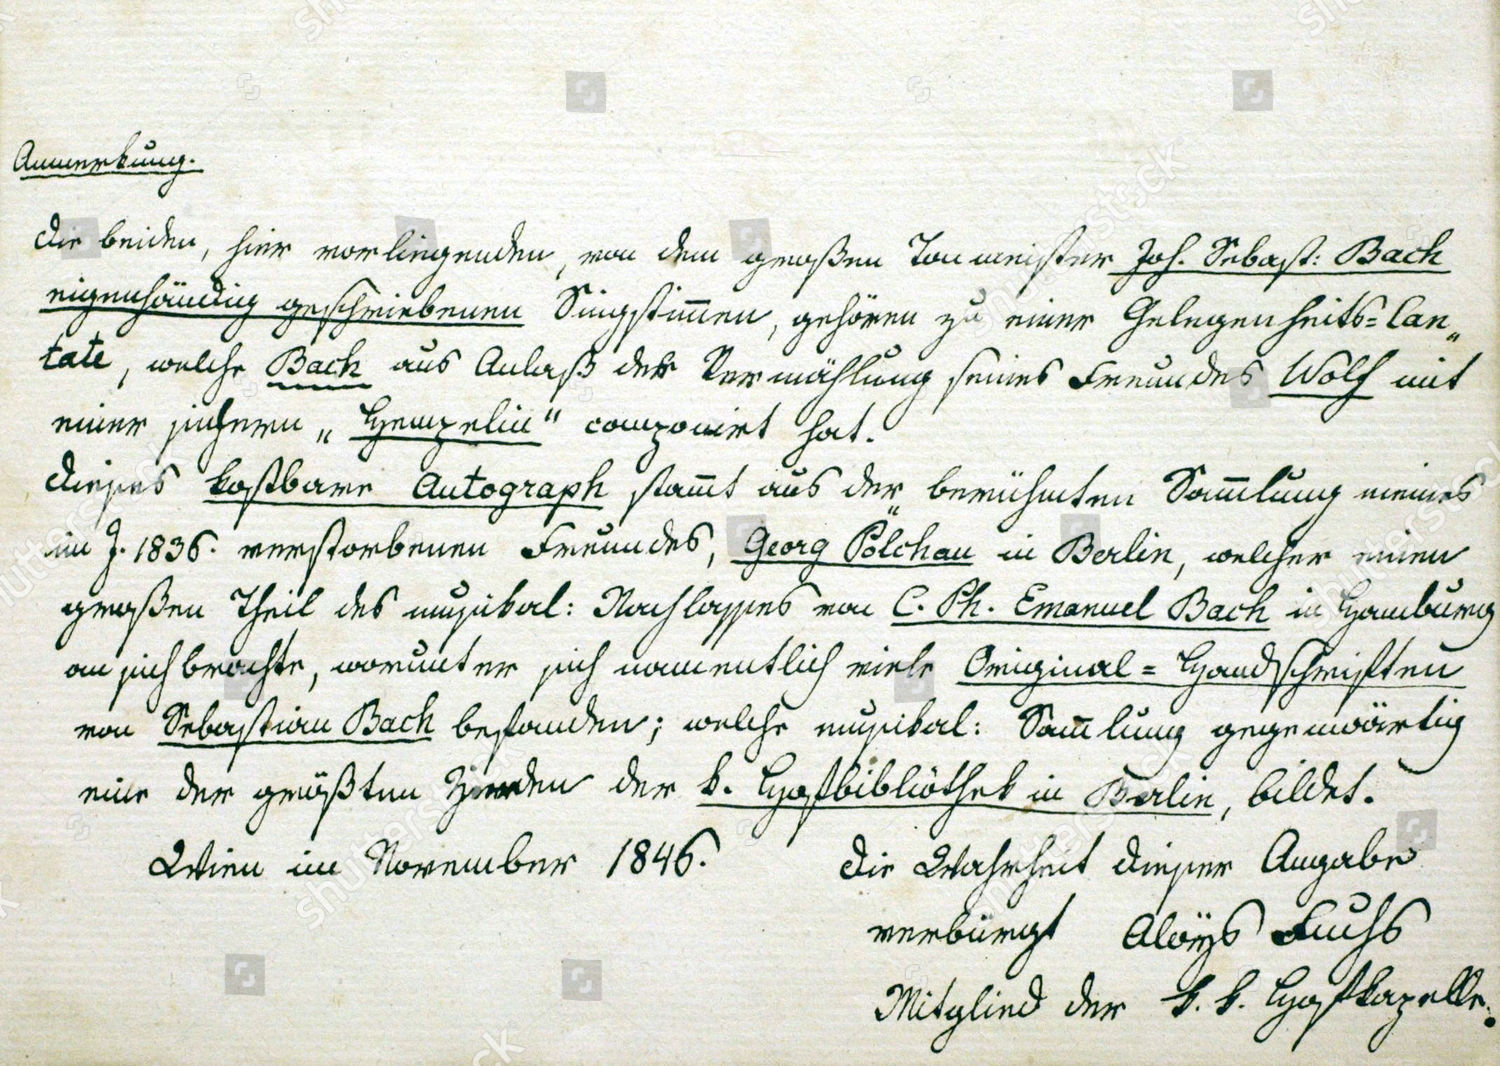 Anmerkung.
Die beiden, hier vorliegenden, von dem großen Tonmeister Joh. Sebast: Bach
eigenhändig geschriebenen Singstim̅en, gehören zu einer Gelegenheits=Can„
tate, welche Bach aus Anlaß der Vermählung seines Freundes Wolf mit
einer jüngern „Hempelin“ componirt hat.
Dieses kostbare Autograph stam̅t aus der berühmten Sam̅lung meines
im J. 1836. verstorbenen Freundes, Georg Pölchau in Berlin, welcher einen
großen Theil des musikal: Nachlasses von C. Ph. Emanuel Bach in Hamburg
an sich brachte, worunter sich namentlich viele Original=Handschriften
von Sebastian Bach befanden; welche musikal: Sam̅lung gegenwärtig
eine der größten Zierden der k. Hofbibliöthek in Berlin, bildet.
Wien im November 1846.
Die Wahrheit dieser Angabe
verbürgt Aloÿs Fuchs
Mitglied der k. k. Hofkapelle.
shutterstock